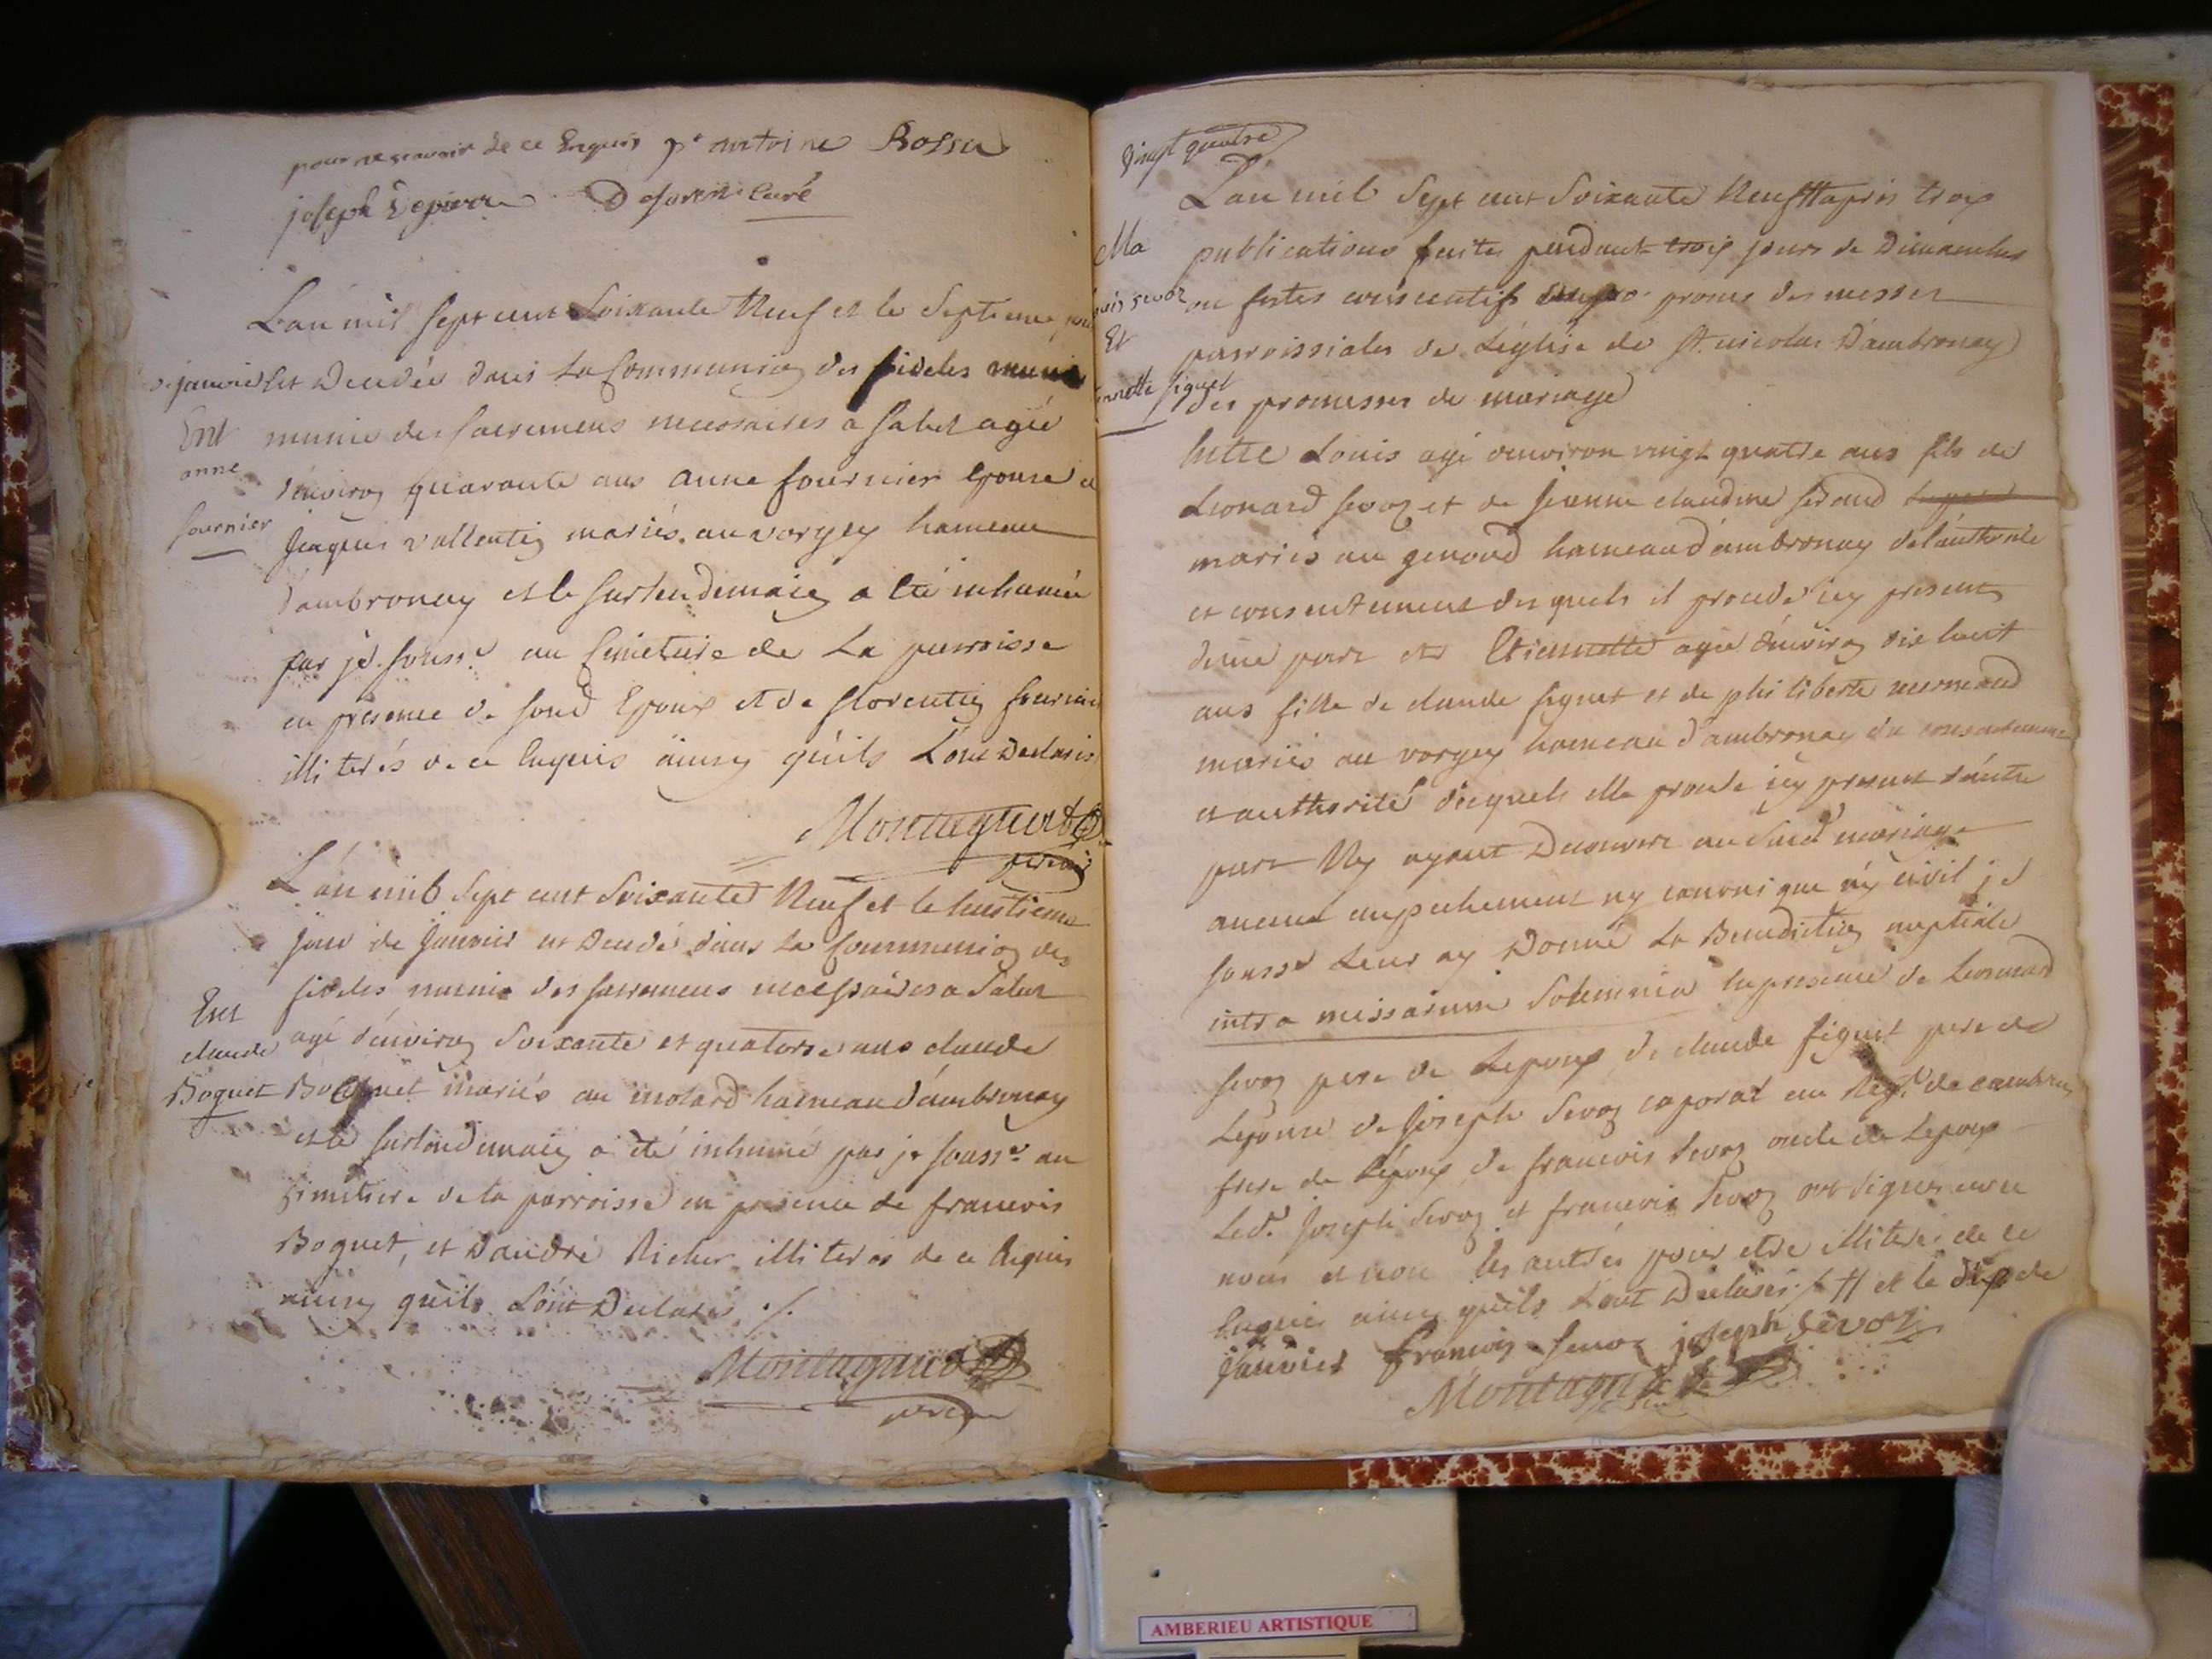 pour ne scavoir de ce Enquis pr antoine Bossu
joseph Lepierre curé
L'an mil sept cent soixante neuf et le septieme jour
janvier est Decedée dans La Communion des fideles
Ent
anne
fournier
munie des sacremens necessaires a salut agée
d'environ quarante ans anne fournier epouse de
jacques vallentin mariés au vorgey hameau
d'ambronay et le surlendemain a été inhumée
par je souss.é au Cimetiere de La parroisse
en presence de son d. Epoux et de florentin fournier
illiterés de ce Enquis ainsy qu'ils L'ont Declarés
Montagnat
L'an mil sept cent soixante Neuf et le huitieme
jour de janvier est Decedé dans La Communion des
fideles munie des sacremens necessaires a salut
Ent
claude
Boguet
agé d'environ soixante et quatorze ans claude
Boguet mariés au molard hameau d'ambronay
et le surlendemain a été inhumé par je souss.é au
Cimetiere de la parroisse en presence de francois
Boguet, et D'andré Richer illiterés de ce Requis
ainsy qu'ils L'ont Declaré ./.
Montagnat
vingt quatre
L'an mil sept cent soixante neuf # apris trois
Ma
publications faites pendant trois jours de Dimanches
sevoz
Et
ou festes aux prones des messes
parroissiales de L'église de St. nicolas D'ambronay
figuet
des promesses de mariage
Entre Louis agé d'environ vingt quatre ans fils de
Leonard sevoz et de jeanne claudine
mariés au genoud hameau d'ambronay de l'authorité
et consentement desquels il procede icy present
d'une part et Etiennette agée d'environ dix huit
ans fille de claude figuet et de philiberte
mariés au vorgey hameau d'ambronay du consentement
et authorité desquels elle procede icy present d'autre
part N'y ayant Decouvert au sud.t mariage
aucun empechement ny canonique n'y civil je
souss.é Leur ay Donné La Benediction nuptiale
intra missarum solemnia En presence de Leonard
sevoz pere de L'epoux de claude figuet pere de
L'epouse de joseph sevoz caporal au Reg.t de
frere de L'epoux de francois sevoz oncle de L'epoux
Led.t joseph sevoz et francois sevoz ont signés avec
nous et non les autres pour etre illiterés de ce
Enquis ainsy qu'ils L'ont Declarés ./. # et le dix de
janvier francois sevoz joseph sevoz
Montagnat
AMBERIEU ARTISTIQUE